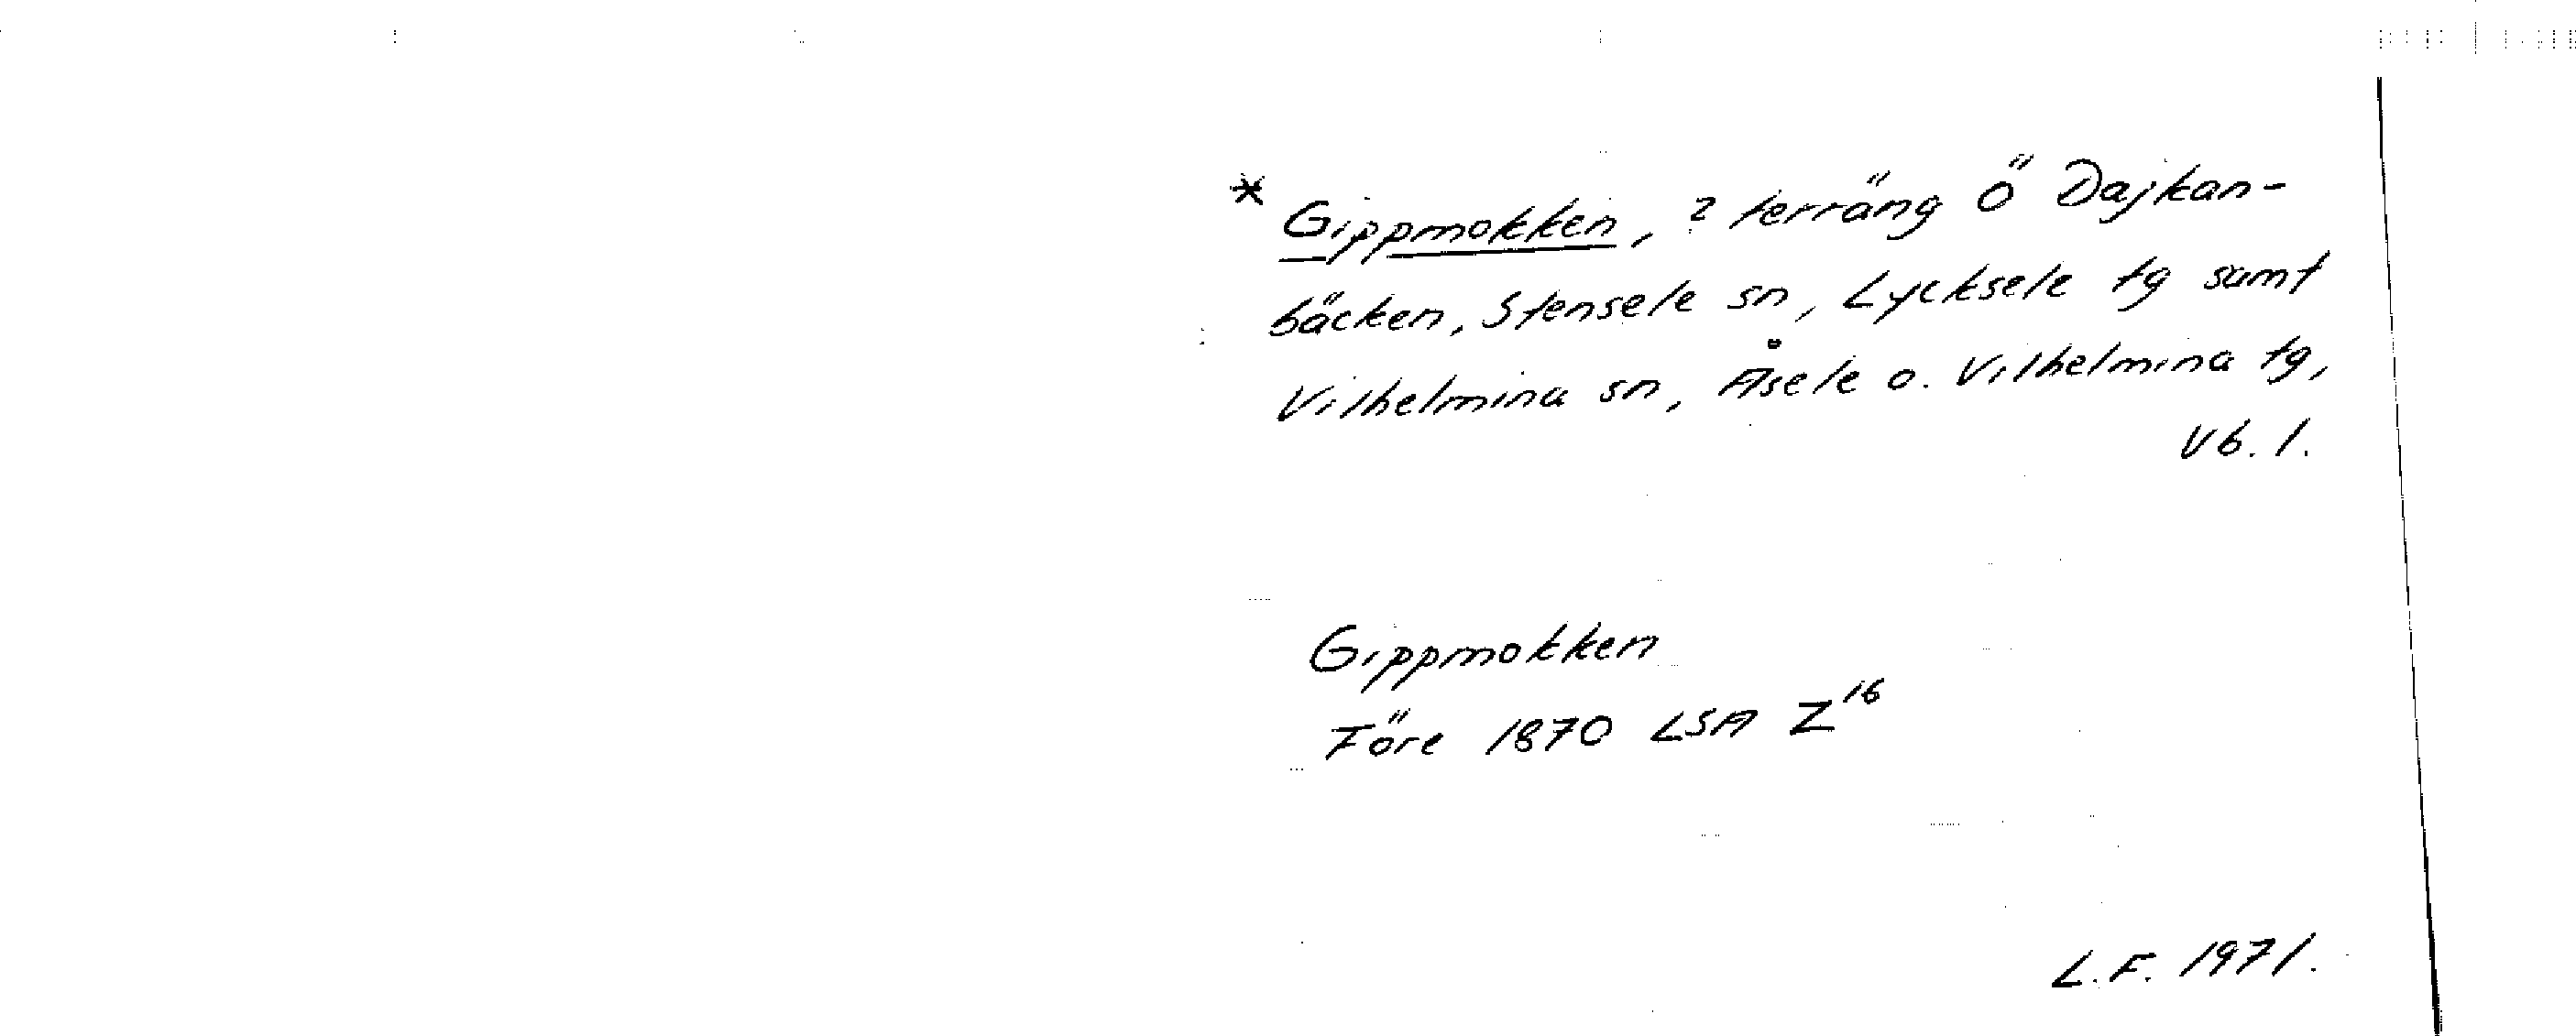 * Gippmokken, ? terräng Ö Dajkan-
bäcken, Stensele sn, Lycksele tg samt
Vilhelmina sn, Åsele o. Vilhelmina tg,
Vb. l.
Gippmokken
Före 1870 LSA Z16
L.F. 1971.